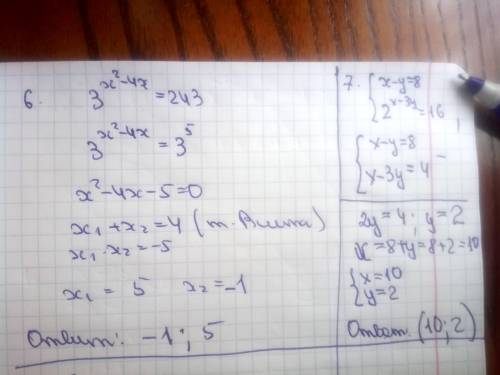 6. 3^(x²-4x) = 243
3^(x²-4x) = 3^5
x²-4x-5=0
x₁+x₂=4 (т. Виета)
x₁·x₂=-5
x₁ = 5 x₂=-1
Ответ: -1; 5
7. { x-y=8
2^(x-3y)=16,
{ x-y=8
x-3y=4 -
2y=4; y=2
x=8+y=8+2=10
{ x=10
y=2
Ответ: (10; 2)